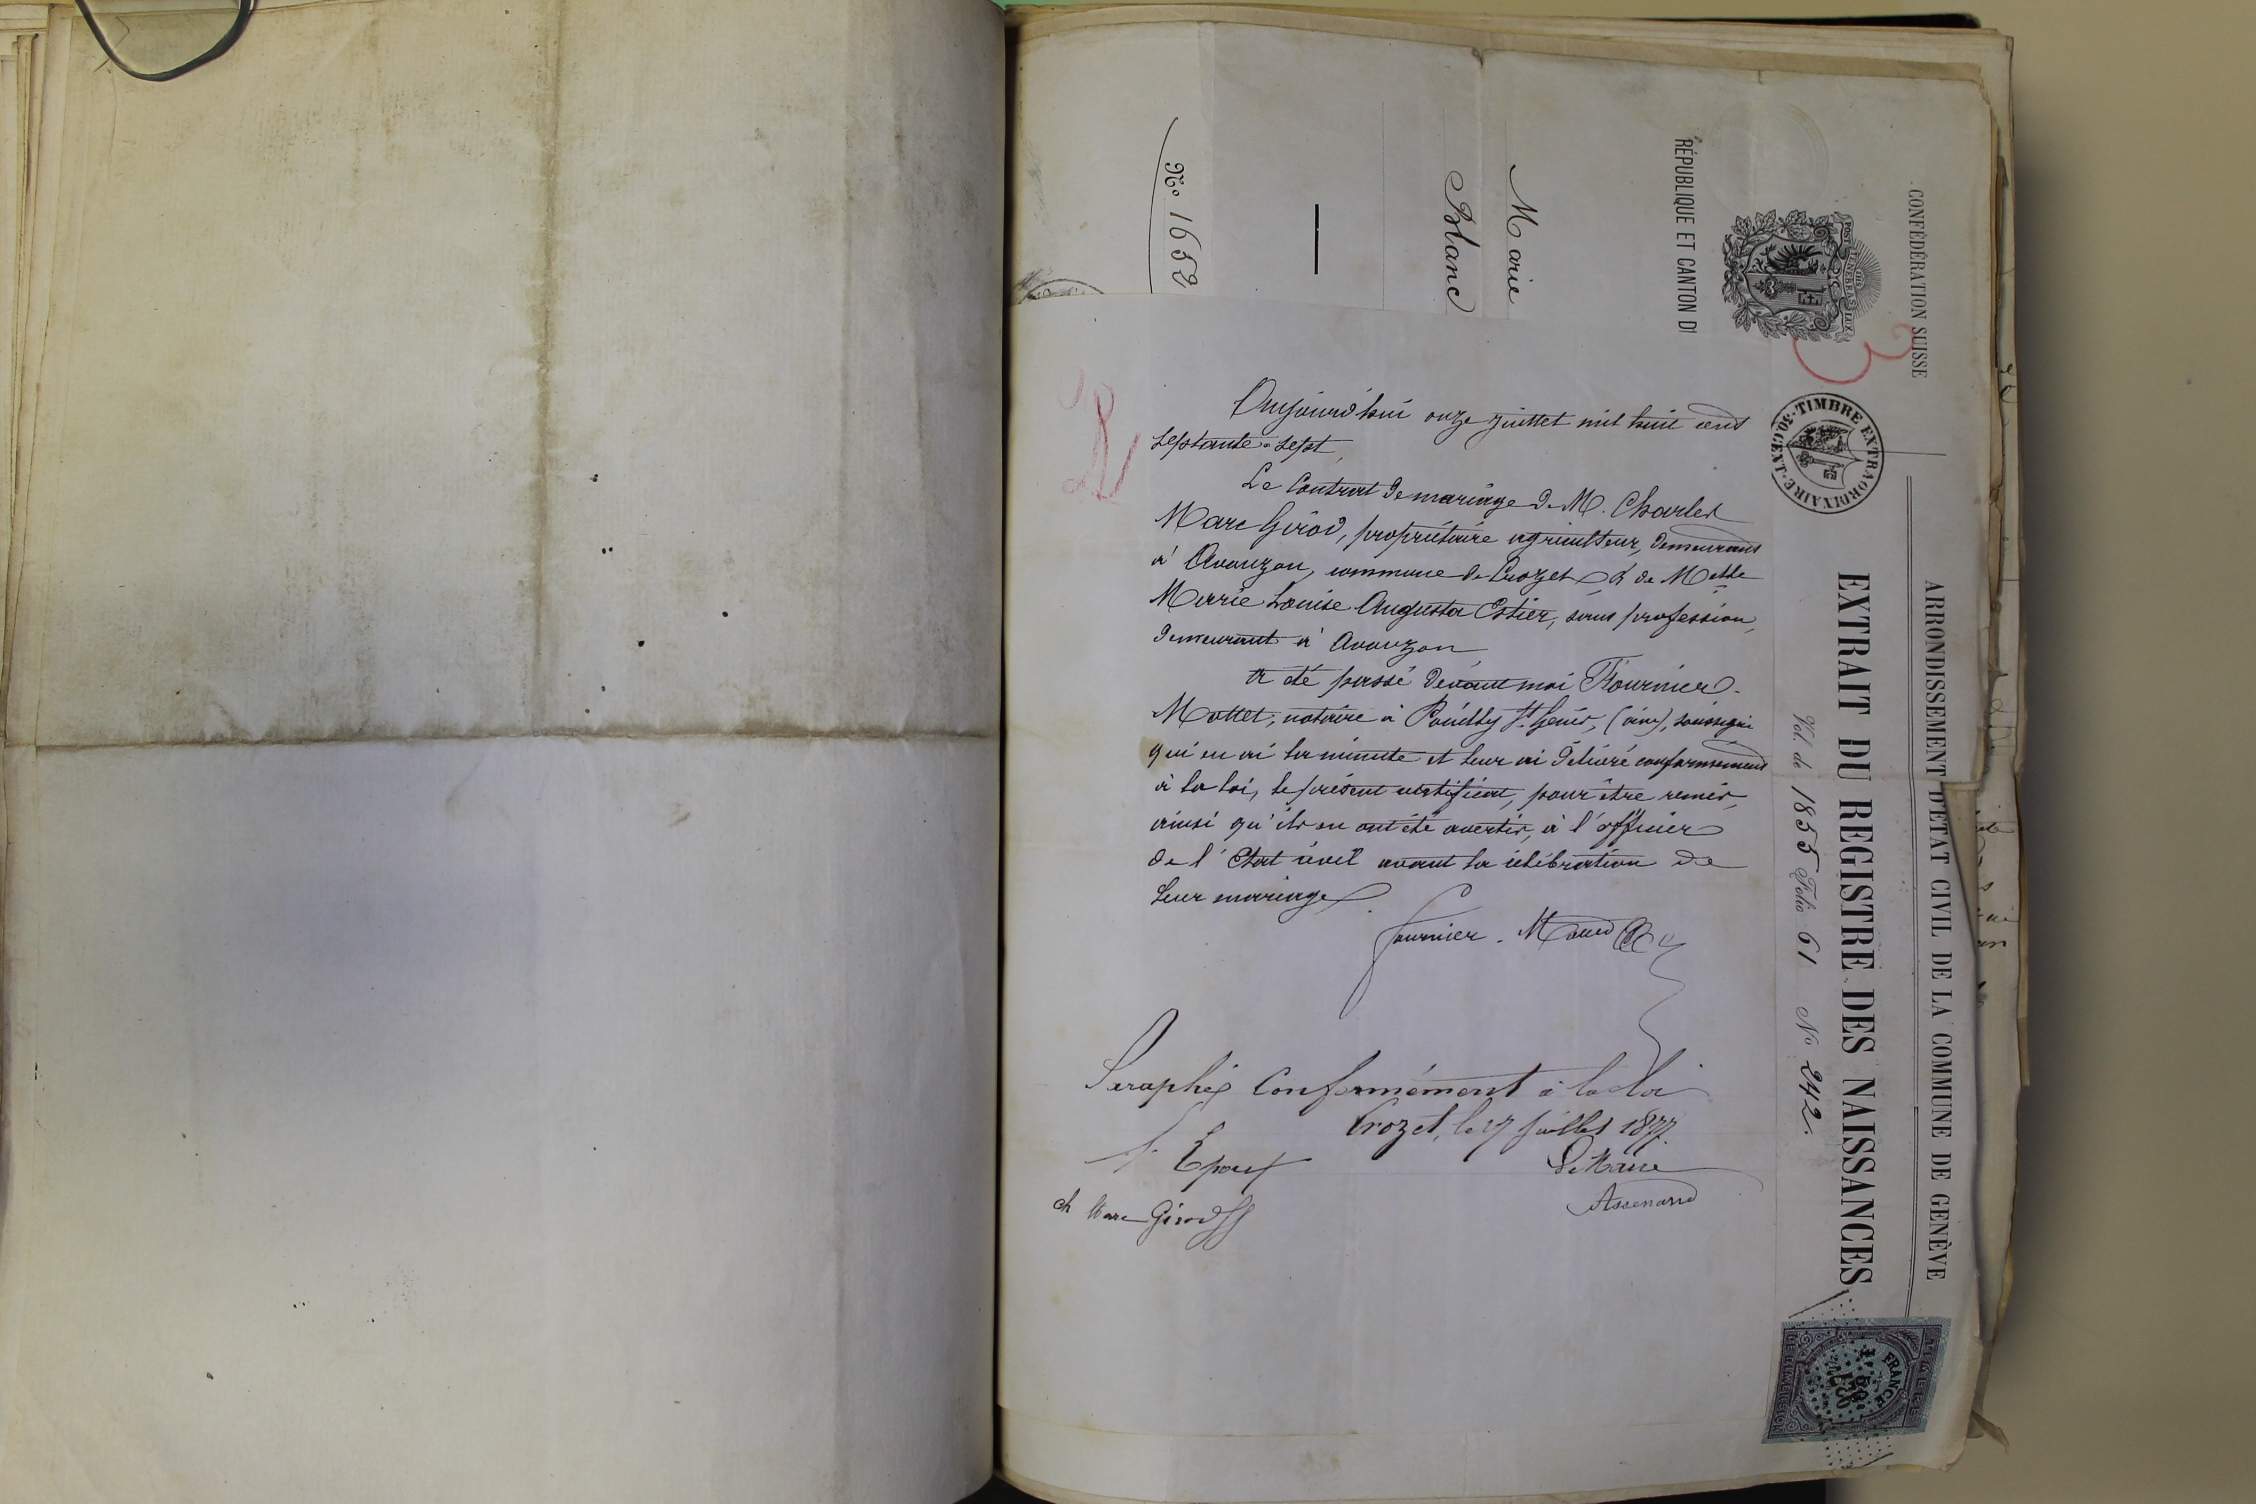 Aujourd'hui onze juillet mil huit cent
septante-sept,
Le Contrat de mariage de M. Charles
Marc Girod, propriétaire agriculteur, demeurant
à Avouzon, commune de Crozet, & de Melle
Marie Louise Augusta Estier, sans profession,
demeurant à Avouzon,
a été passé devant moi Fournier-
Mottet, notaire à Pouilly St. Genis, (ain), soussigné
qui en ai la minute et leur ai délivré conformément
à la loi, le présent certificat, pour être remis,
ainsi qu'ils en ont été avertis, à l'officier
de l'Etat civil avant la célébration de
leur mariage.
Fournier-Mottet
Paraphé Conformément à la loi
Crozet, le 27 juillet 1877.
L'Epoux
Le Maire
ch Marc Girod
CONFÉDÉRATION SUISSE
POST TENEBRAS LUX
RÉPUBLIQUE ET CANTON D
TIMBRE EXTRAORDINAIRE
ARRONDISSEMENT D'ÉTAT CIVIL DE LA COMMUNE DE GENÈVE
EXTRAIT DU REGISTRE DES NAISSANCES
Vol. de 1855 Folio 61 No 242.
Marie
Blanc
No 1652
FRANCE